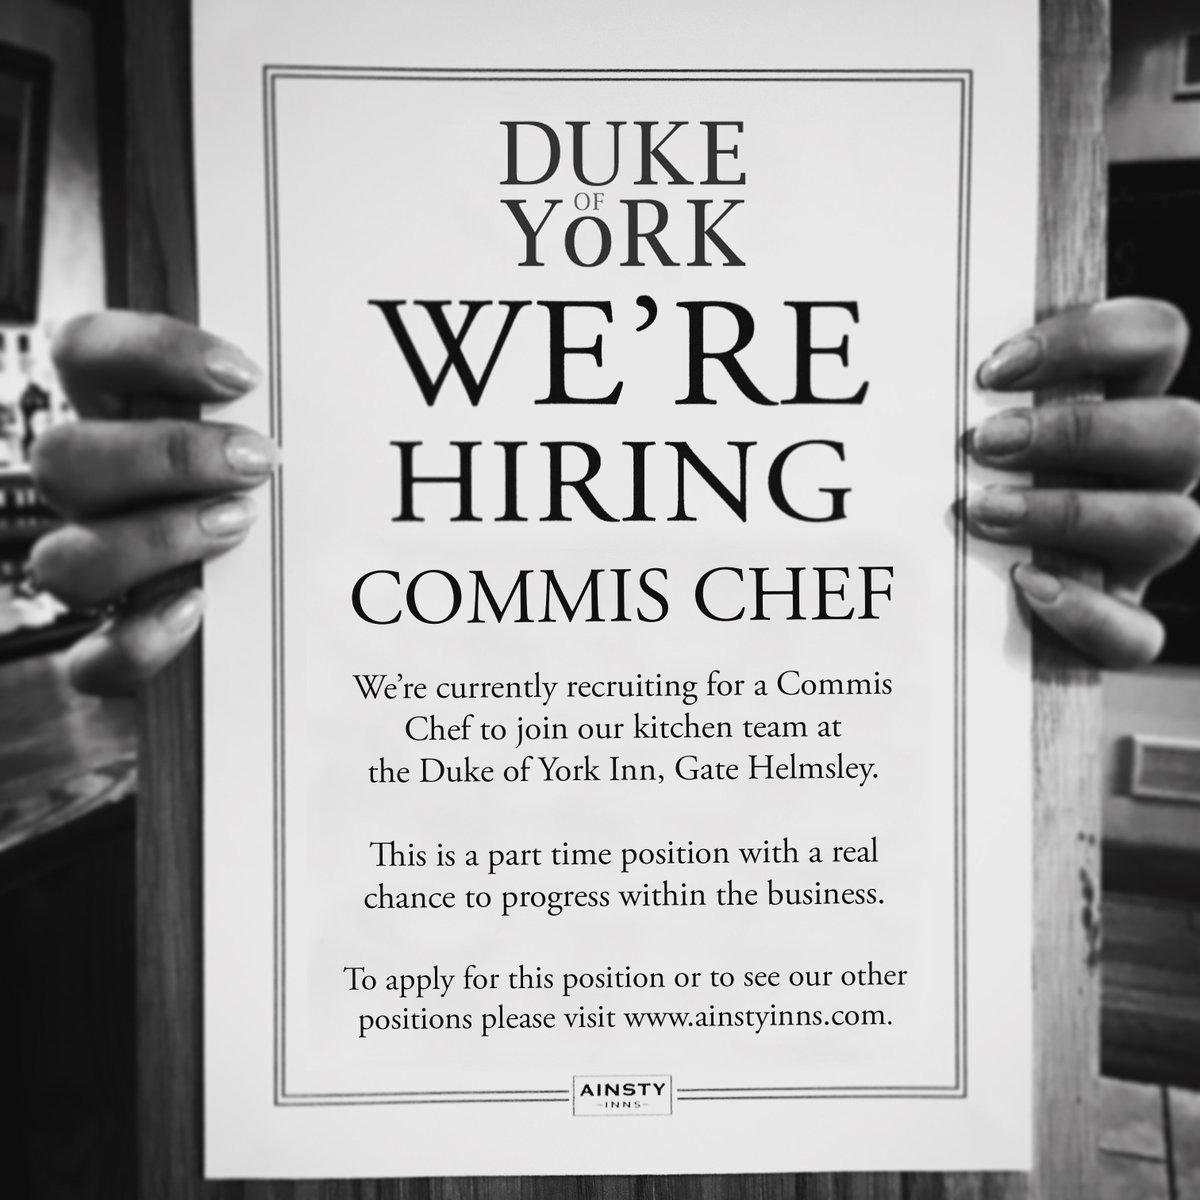 DUKE
OF
YORK
WE'RE
HIRING
COMMIS CHEF
We're currently recruiting for a Commis
Chef to join our kitchen team at
the Duke of York Inn, Gate Helmsley.
This is a part time position with a real
chance to progress within the business.
To apply for this position or to see our other
positions please visit www.ainstyinns.com.
AINSTY
-INNS-